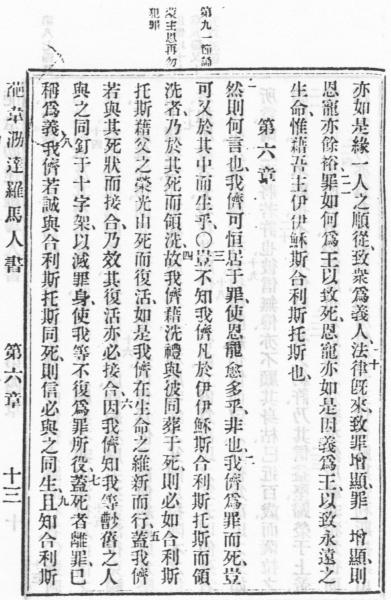 第九一誦讀
蒙主恩再勿
犯罪
亦如是緣一人之順從、致衆爲義人法律旣來、致罪增顯、罪一增顯、則
恩寵亦餘裕罪如何爲王以致死、恩寵亦如是因義爲王、以致永遠之
生命、惟藉吾主伊伊穌斯合利斯托斯也、
第六章
然則何言也、我儕可恒居于罪、使恩寵愈多乎、非也、我儕爲罪而死、豈
可又於其中而生乎、〇豈不知我儕凡於伊伊穌斯合利斯托斯而領
洗者、乃於其死而領洗、故我儕藉洗禮與彼同葬于死、則必如合利斯
托斯藉父之榮光由死而復活、如是我儕在生命之維新而行、蓋我儕
若與其死狀而接合、乃效其復活亦必接合、因我儕知我等舊人
與之同釘于十字架、以滅罪身、使我等不復爲罪所役、蓋死者離罪已
稱爲義、我儕若誠與合利斯托斯同死、則信必與之同生、且知合利斯
羅馬人書
第六章
十三